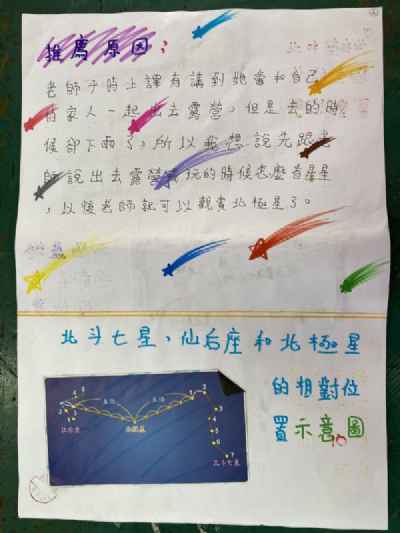 推薦原因:
老師平時上課有講到她曾和自己
的家人一起出去露營,但是去的時
候卻下雨了,所以我想說先跟老
師說出去露營或玩的時候怎麼看星星
,以後老師就可以觀賞北極星了。
北斗七星,仙后座和北極星
的相對位
置示意圖
五倍
五倍
仙后座
北極星
北斗七星